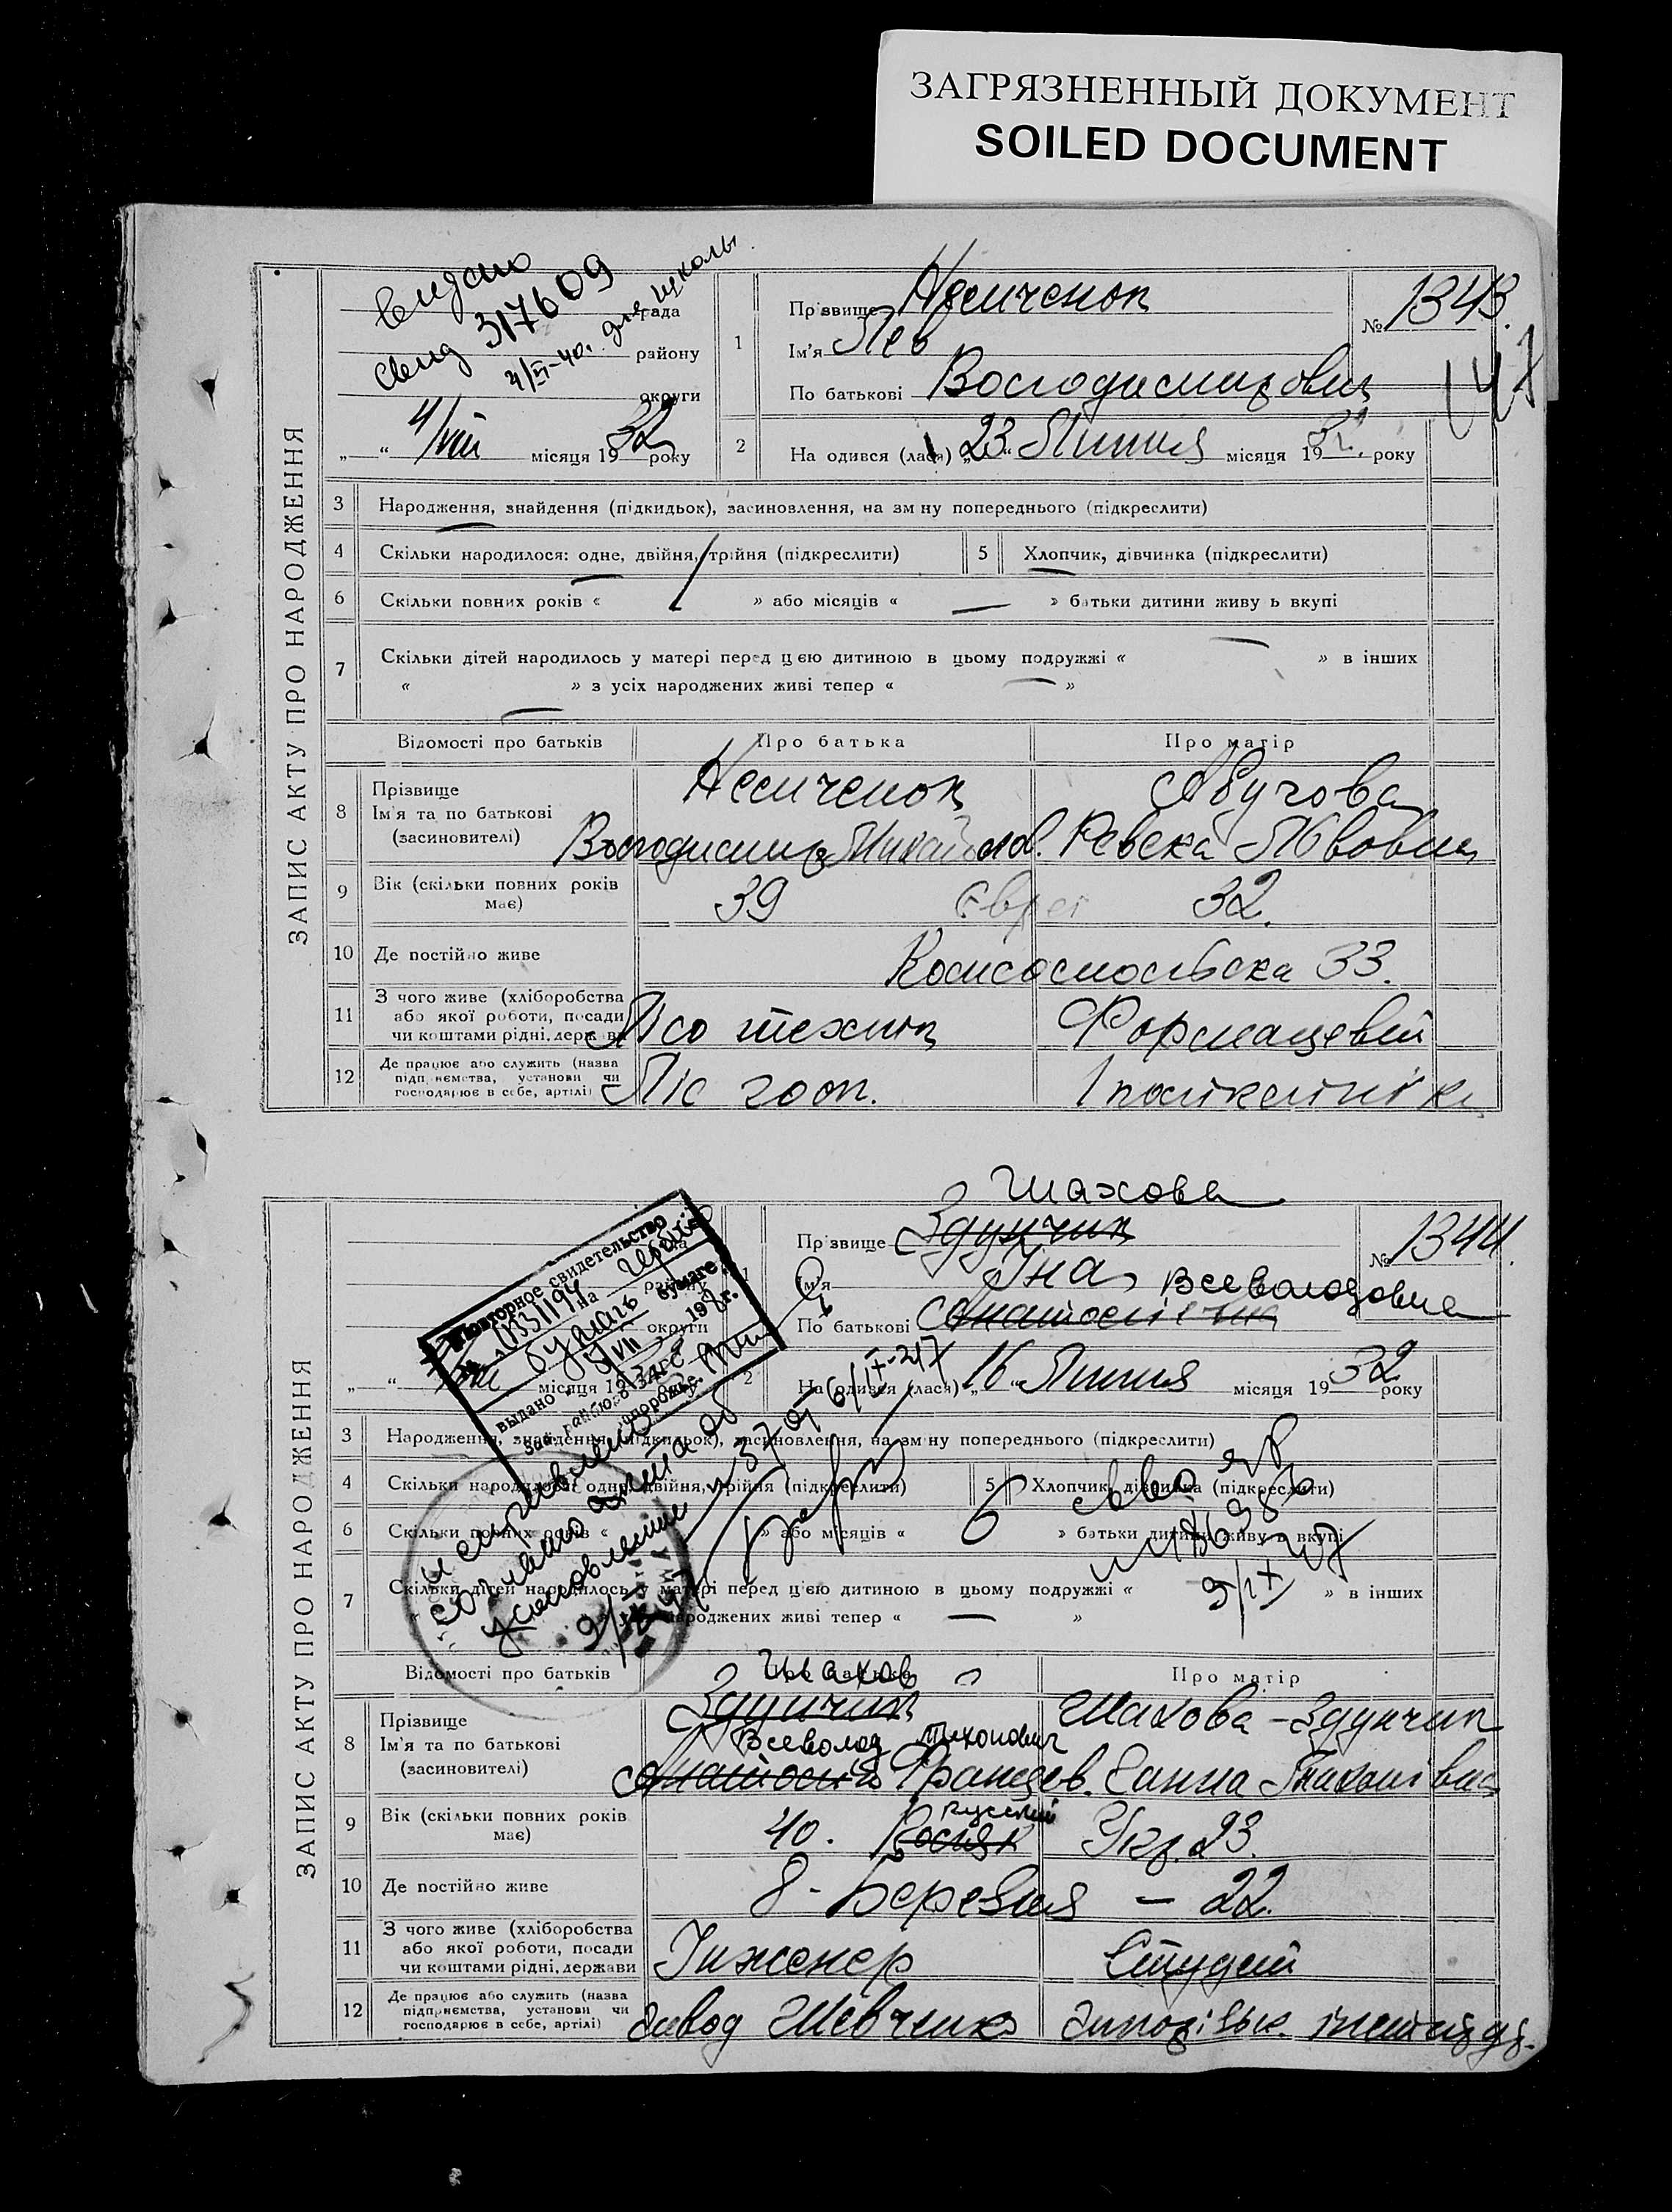 ЗАГРЯЗНЕННЫЙ ДОКУМЕНТ
SOILED DOCUMENT
ЗАПИС АКТУ ПРО НАРОДЖЕННЯ
видано
свид 317609
для школы
рада
району
округи
4/VIII місяця 1932 року
1
Прізвище
Ім'я Лев
По батькові Володимирович
№ 1343.
2
На одився (лася) „23“ Липня місяця 193 , року
3 Народження, знайдення (підкидьок), засиновлення, на зм ну попереднього (підкреслити)
4 Скільки народилося: одне, двійня, трійня (підкреслити) 5 Хлопчик, дівчинка (підкреслити)
6 Скільки повних років « 1 » або місяців « — » батьки дитини живу ь вкупі
7 Скільки дітей народилось у матері перед ц єю дитиною в цьому подружжі « — » в інших
« — » з усіх народжених живі тепер « — »
Відомості про батьків Про батька Про матір
8 Прізвище
Ім'я та по батькові
(засновителі)
Володимир Михайлов. Ревека Львовна
9 Вік (скільки повних років має) 39 Євреї 32.
10 Де постійно живе Комсомольска 33.
11 З чого живе (хліборобства або якої роботи, посади чи коштами рідні, держави
технік Формацевт
12 Де працює або служить (назва підприємства, установи чи господарює в себе, артілі)
Ліс 1 поліклініка
ЗАПИС АКТУ ПРО НАРОДЖЕННЯ
Шахова
Прізвище Здунчик
Ім'я Іна
Всеволодовна
По батькові Анатоліевна
№ 1344.
Повторное свидетельство
выдано
Запорожье
округи
місяця 19
2
На одився (лася) „16“ Липня місяця 1932 року
3 Народження, знайдення (підкидьок), засиновлення, на зм ну попереднього (підкреслити)
4 Скільки народилося: одне, двійня, трійня (підкреслити) 5 Хлопчик, дівчинка (підкреслити)
6 Скільки повних років « 6 » або місяців « » батьки дитини живу ь вкупі
7 Скільки дітей народилось у матері перед ц єю дитиною в цьому подружжі « » в інших
народжених живі тепер « — »
исправлено
согласно акта об
усыновлении
6/IX-47
9/IX 47
Відомості про батьків Про матір
Шахов
8 Прізвище
Ім'я та по батькові
(засновителі)
Здунчик Шахова-Здунчик
Всеволод Тихонович
Анатолій Францев. Ганна Тихонівна
9 Вік (скільки повних років має) 40. Росіян русский Укр. 23.
10 Де постійно живе 8-Березня — 22.
11 З чого живе (хліборобства або якої роботи, посади чи коштами рідні, держави
Інженер Студент
12 Де працює або служить (назва підприємства, установи чи господарює в себе, артілі)
завод